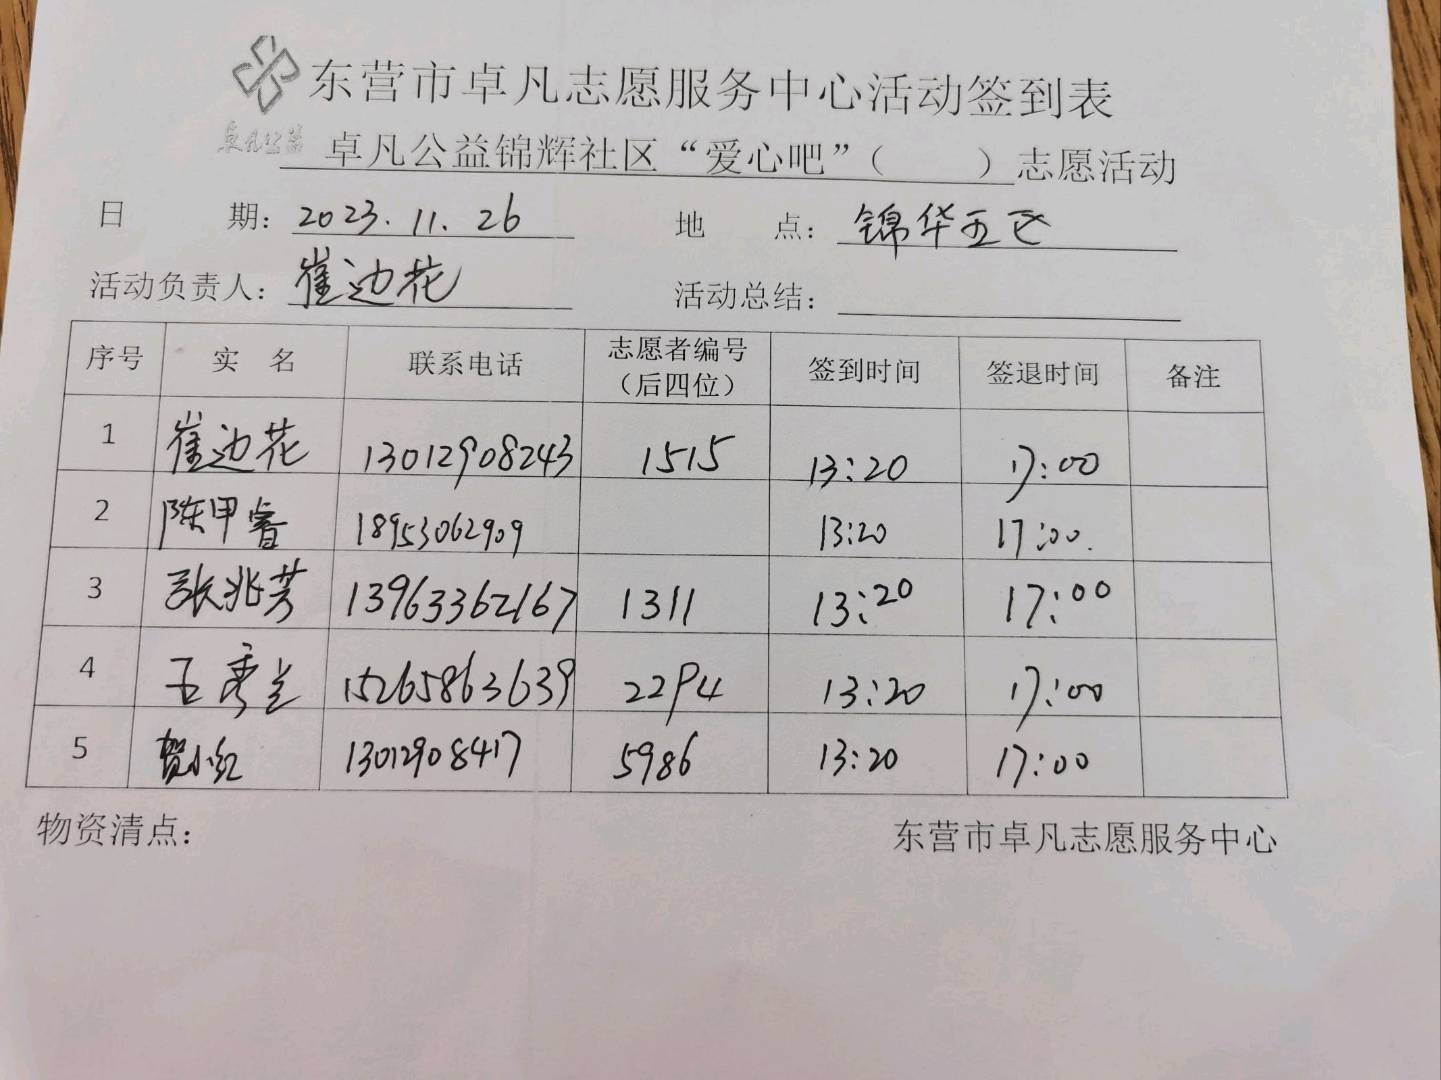 东营市卓凡志愿服务中心活动签到表
卓凡公益
卓凡公益锦辉社区“爱心吧”（ ）志愿活动
日 期：2023.11.26 地 点：锦华五区
活动负责人：崔边花 活动总结：
序号 实 名 联系电话 志愿者编号（后四位） 签到时间 签退时间 备注
1 崔边花 13012908243 1515 13:20 17:00
2 陈甲睿 18953062909 13:20 17:00.
3 张兆芳 13963362167 1311 13:20 17:00
4 王秀兰 15265863639 2294 13:20 17:00
5 贺小红 13012908417 5986 13:20 17:00
物资清点： 东营市卓凡志愿服务中心